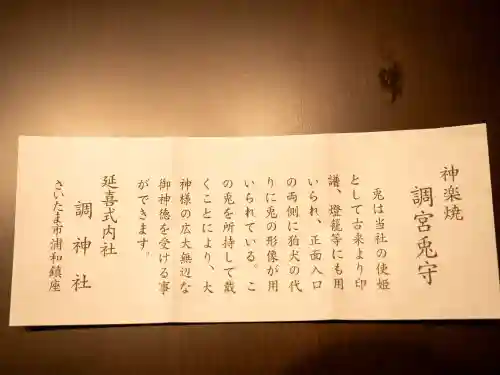 神楽焼
調宮兎守
兎は当社の使姫
として古来より印
譜、燈籠等にも用
いられ、正面入口
の両側に狛犬の代
りに兎の形像が用
いられている。こ
の兎を所持して戴
くことにより、大
神様の広大無辺な
御神徳を受ける事
ができます。
延喜式内社
調神社
さいたま市浦和鎮座